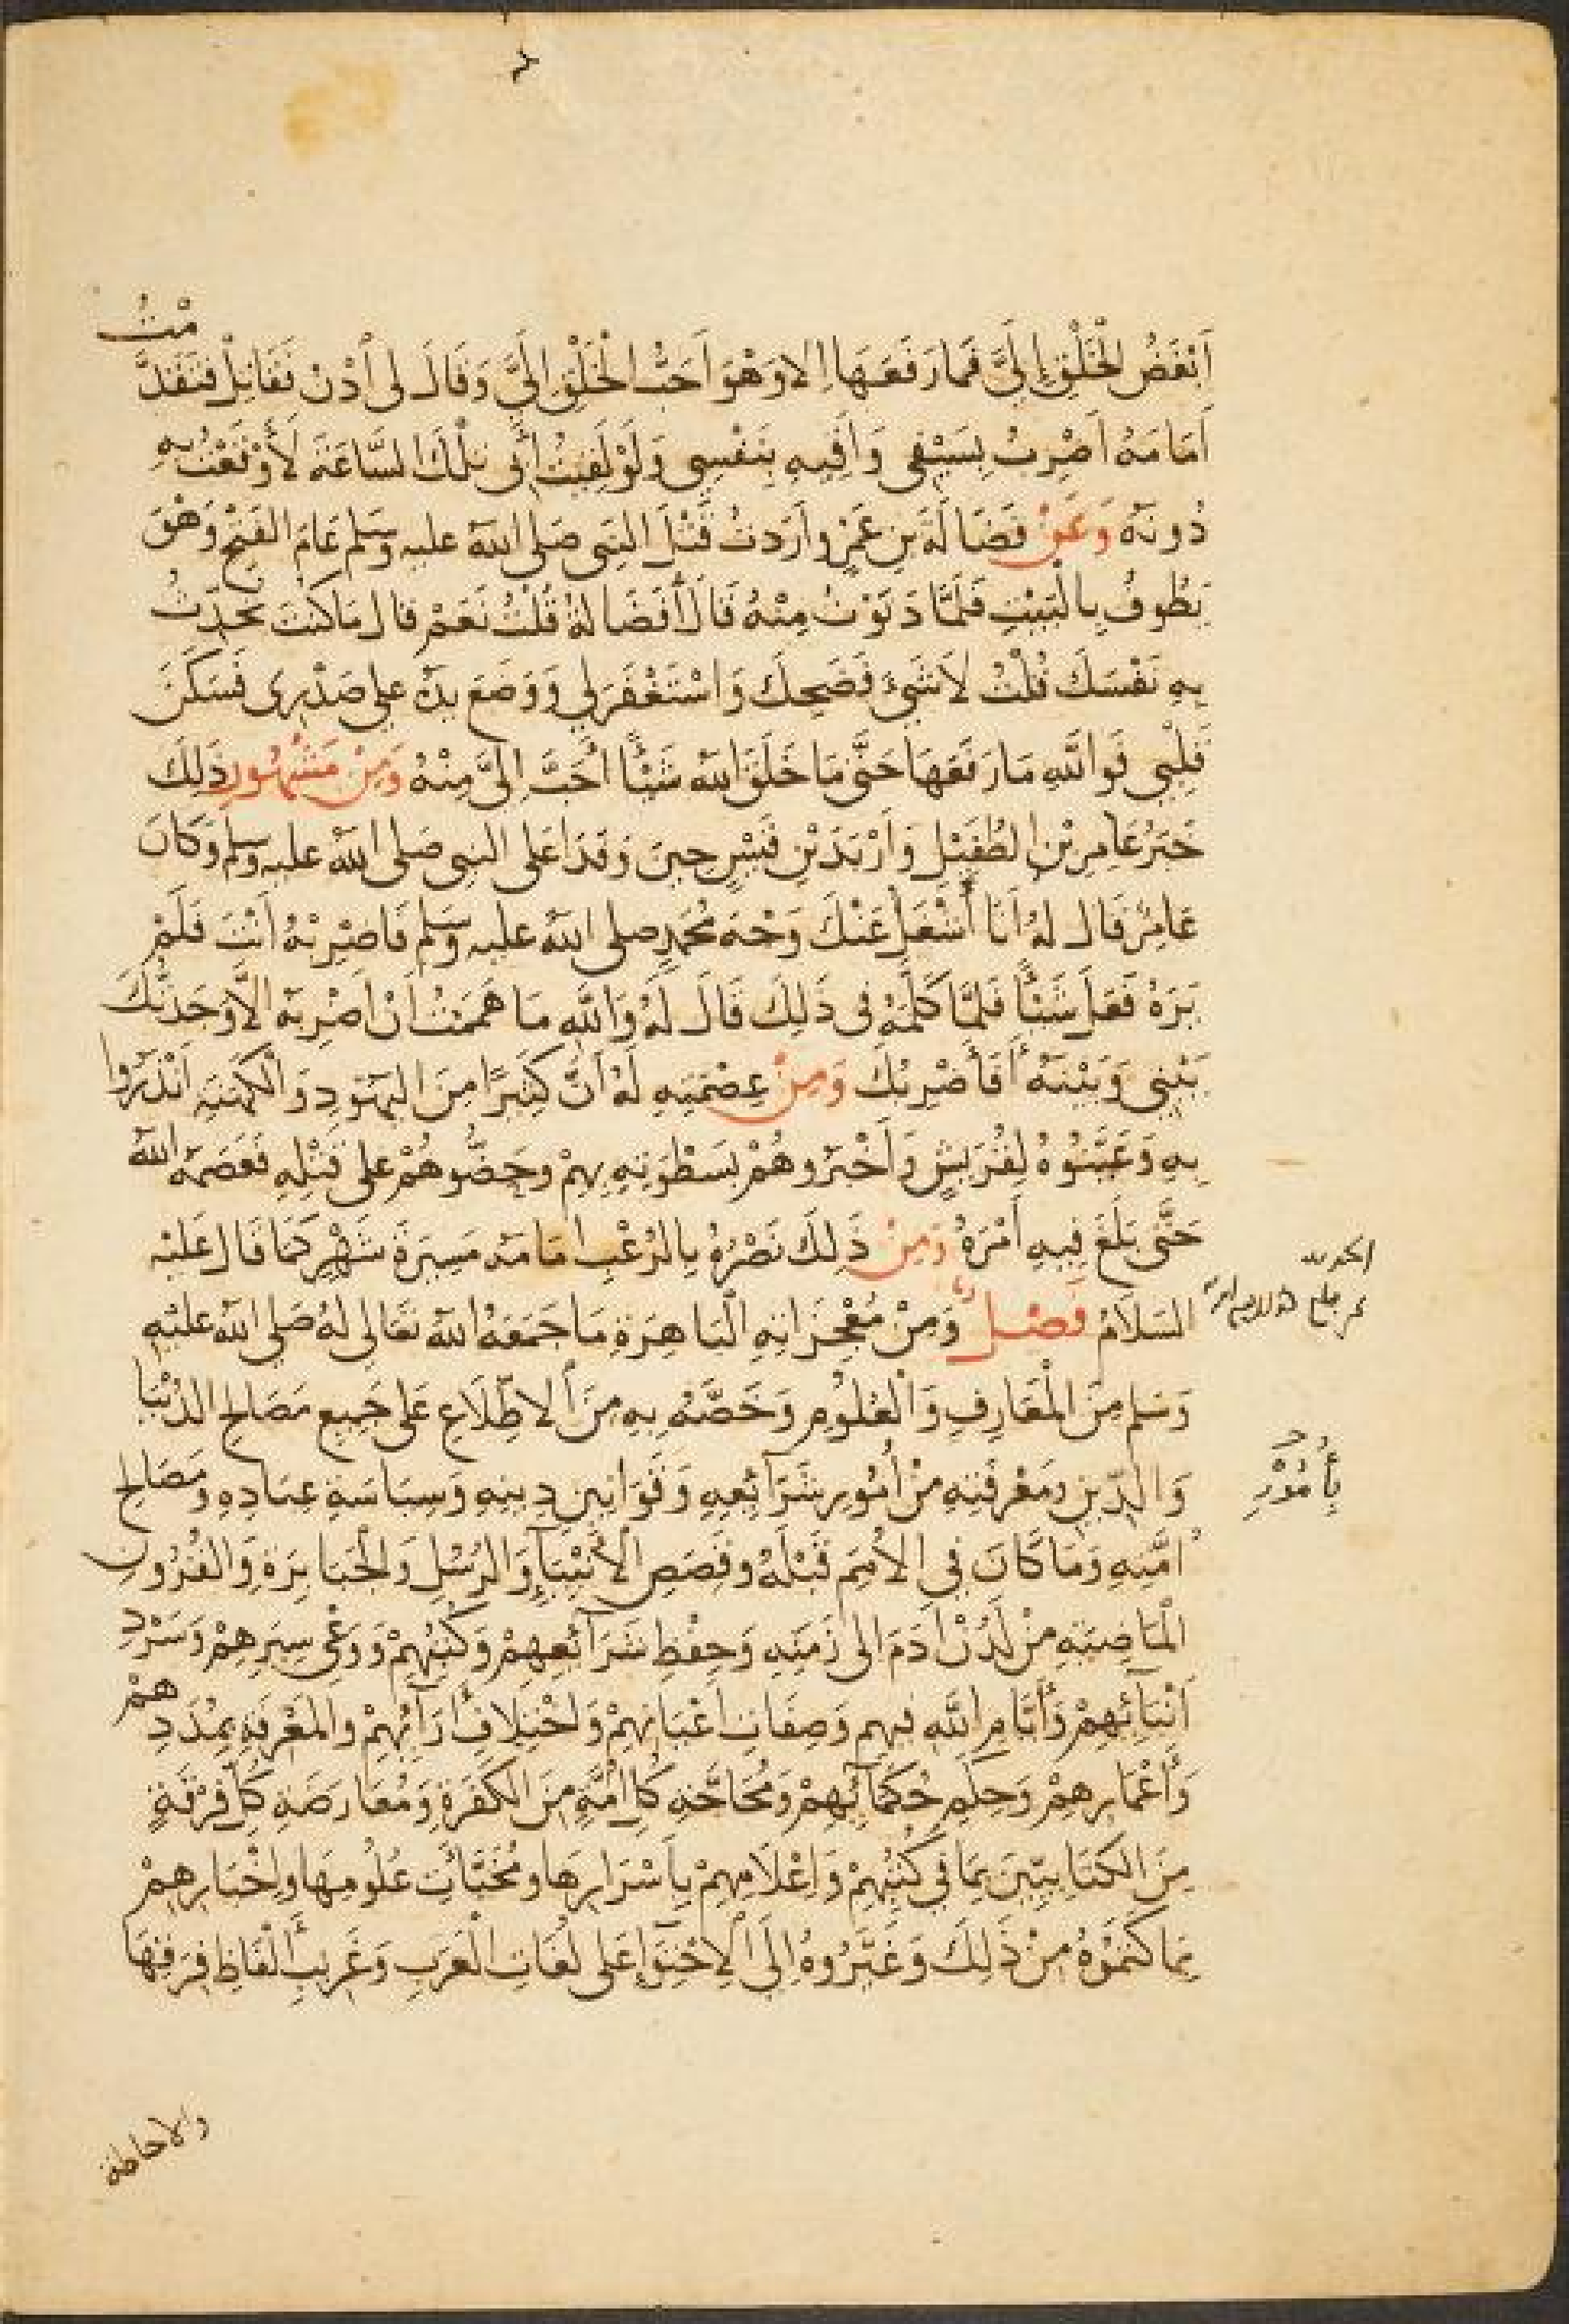 أَبْغَضُ الْخَلْقِ إِلَيَّ فَمَا رَفَعَهَا إِلا وَهْوَ أَحَبُّ الْخَلْقِ إِلَيَّ وَقَالَ لى أُدْنُ فَقَاتِلْ فَتَقَدَّمْتُ
أَمَامَهُ أَضْرِبُ بِسَيْفِى وَأَقِيهِ بِنَفْسِى وَلَوْ لَقِيتُ أَبِى تِلْكَ السَّاعَةَ لَأَوْقَعْتُ بِهِ
دُونَهُ وَعَنْ فَضَالَةَ بن عَمْرٍو أَرَدْتُ قَتْلَ النَّبِى صَلى الله عليه وسَلم عَامَ الفَتْحِ وَهْوَ
يَطُوفُ بِالْبَيْتِ فَلَمَّا دَنَوْتُ مِنْهُ قَالَ أَفَضَالَةُ قُلْتُ نَعَمْ قال مَا كُنْتَ تُحَدِّثُ
بِهِ نَفْسَكَ قُلْتُ لَا شَىْءَ فَضَحِكَ وَاسْتَغْفَرَ لِي وَوَضَعَ يَدَهُ على صَدْرِى فَسَكَنَ
قَلْبِي فَوَاللَّهِ مَا رَفَعَهَا حَتَّى مَا خَلَقَ الله شَيْئًا أَحَبَّ إِلَىَّ مِنْهُ وَمِنْ مَشْهُورِ ذَلِكَ
خَبَرُ عَامِرِ بْنِ الطُّفَيْلِ وَأَرْبَدَ بْنِ قَيْسٍ حِينَ وَفَدَا عَلى النبِى صَلى الله عليه وسلم وَكَانَ
عَامِرٌ قَال لهُ أَنَا أَشْغَلُ عَنْكَ وَجْهَ مُحَمدٍ صلى الله عليه وسَلم فَاضْرِبْهُ أَنْتَ فَلَمْ
يَرَهُ فَعَلَ شَيْئًا فَلمَّا كَلَّمَهُ فى ذَلِكَ قَالَ لَهُ وَاللَّهِ مَا هَمَمْتُ أَنْ أَضْرِبَهُ إلَّا وَجَدْتُكَ
بَيْنِى وَبَيْنَهُ أَفَأَضْرِبُكَ وَمِنْ عِصْمَتِهِ لَهُ أَنَّ كَثِيرًا مِنَ اليَهُودِ وَالْكَهَنَةِ أَنْذَرُوا
بِهِ وَعَيَّنُوهُ لِقُرَيْشٍ وَأَخْبَرُوهُمْ بِسَطْوَتِهِ بِهِمْ وحَضُّوهُمْ على قَتْلِهِ فَعَصَمَهُ الله
حَتَّى بَلَغَ فِيهِ أَمْرَهُ وَمِنْ ذَلِكَ نَصْرُهُ بِالرُّعْبِ أَمَامَهُ مَسِيرَةَ شَهْرٍ كَمَا قَال عَلَيْهِ
السَلَامُ فَصْـلٌ وَمِنْ مُعْجِزَاتِهِ الْبَاهِرَةِ مَا جَمَعَهُ الله تَعَالى لَهُ صَلى الله عليْهِ
وَسَلم مِنَ الْمَعَارِفِ وَالْعُلُومِ وَخَصَّهُ بِهِ مِنَ الْاطِّلَاعِ عَلى جَمِيعِ مَصَالِحِ الدُّنْيَا
وَالدِّينِ ومَعْرِفَتِهِ مِنْ أُمُورِ شَرَائِعِهِ وَقَوَانِينِ دِينِهِ وَسِيَاسَةِ عِبَادِهِ وَمَصَالِحِ
بِأُمُورِ
أُمَّتِهِ وَمَا كَانَ فِي الأُمَمِ قَبْلَهُ وَقَصَصِ الأَنْبِيَاءِ وَالرُّسْلِ وَالْجَبَابِرَةِ وَالْقُرُونِ
الْمَاضِيَةِ مِنْ لَدُنْ آدَمَ إلى زَمَنِهِ وَحِفْظِ شَرَائِعِهِمْ وَكُتُبِهِمْ وَوَعْىِ سِيَرِهِمْ وَسَرْدِ
أَنْبَائِهِمْ وَأَيَّامِ اللَّهِ فِيهِم وَصِفَاتِ أَعْيَانِهِمْ وَاخْتِلَافِ آرَائِهِمْ والمَعْرِفَةِ بِمُدَدِهِمْ
وَأَعْمَارِهِمْ وَحِكَمِ حُكَمَائِهِمْ وَمُحَاجَّةِ كُلِّ أُمَّةٍ مِنَ الكَفَرَةِ وَمُعَارَضَةِ كُلِّ فِرْقَةٍ
مِنَ الكِتَابِيِّينَ بِمَا فِى كُتُبِهِمْ وَإِعْلَامِهِمْ بِأَسْرَارِهَا وَمُخَبَّآتِ عُلُومِهَا وَإِخْبَارِهِمْ
بِمَا كَتَمُوْهُ مِنْ ذَلِكَ وَغَيَّرُوهُ إِلَى الْاحْتِوَاءِ عَلى لُغَاتِ الْعَرَبِ وَغَرِيبِ أَلْفَاظِ فِرَقِهَا
والاحاطة